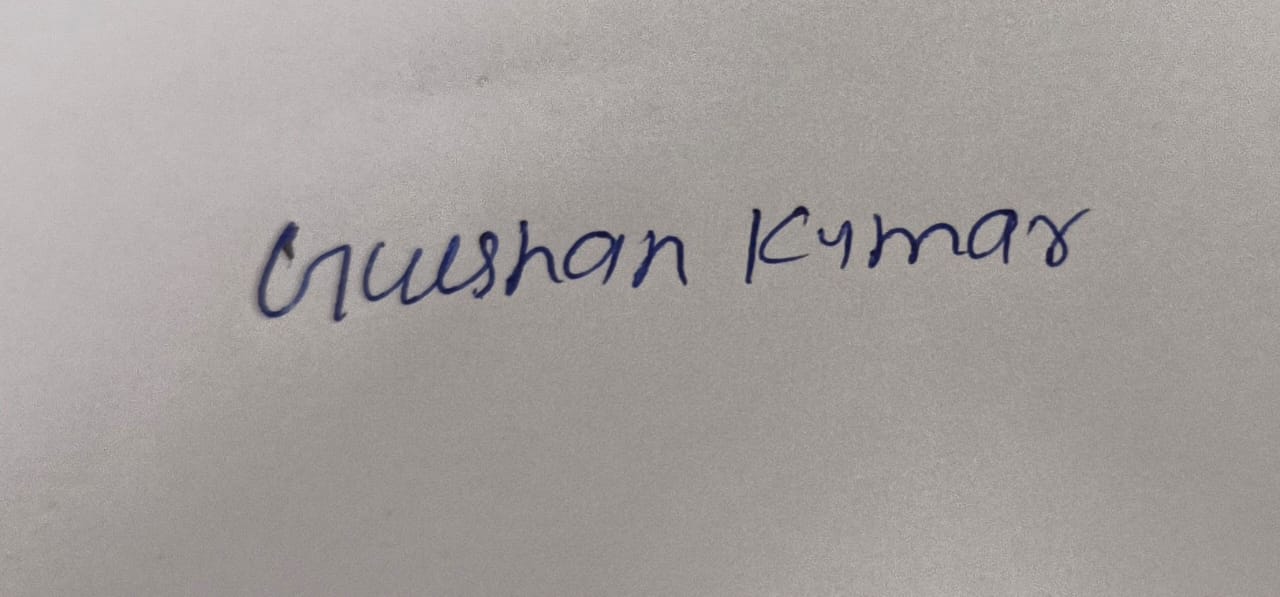 Gulshan Kumar